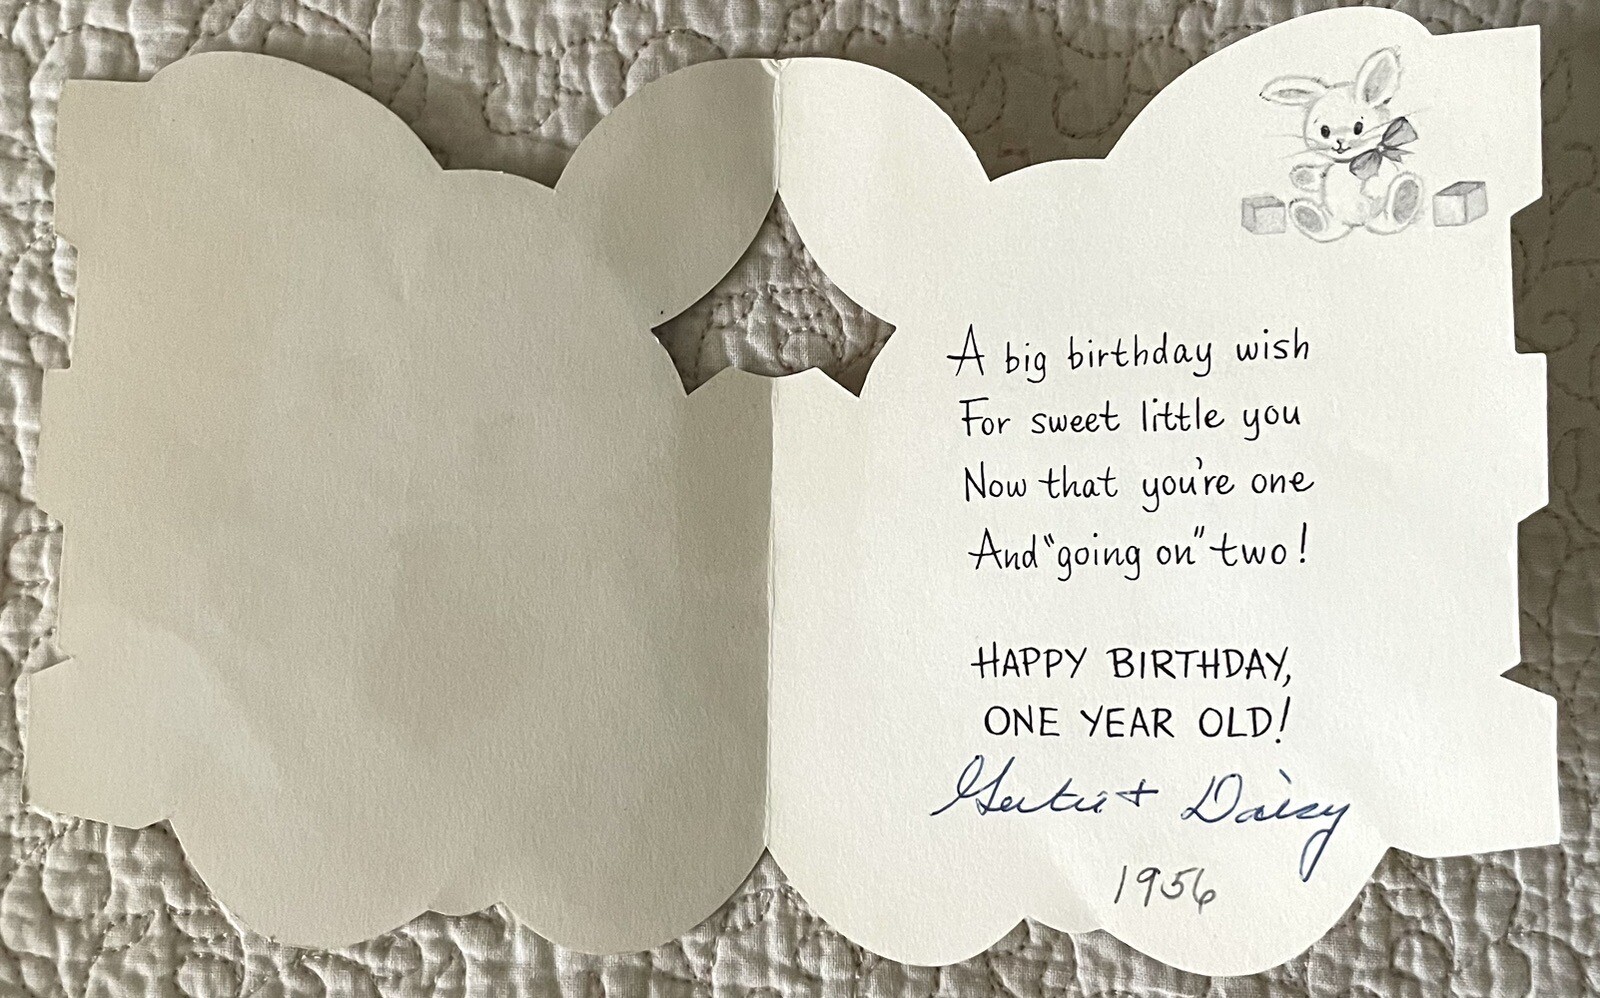 A big birthday wish
For sweet little you
Now that you're one
And "going on" two!
HAPPY BIRTHDAY,
ONE YEAR OLD!
Gertie + Daisy
1956